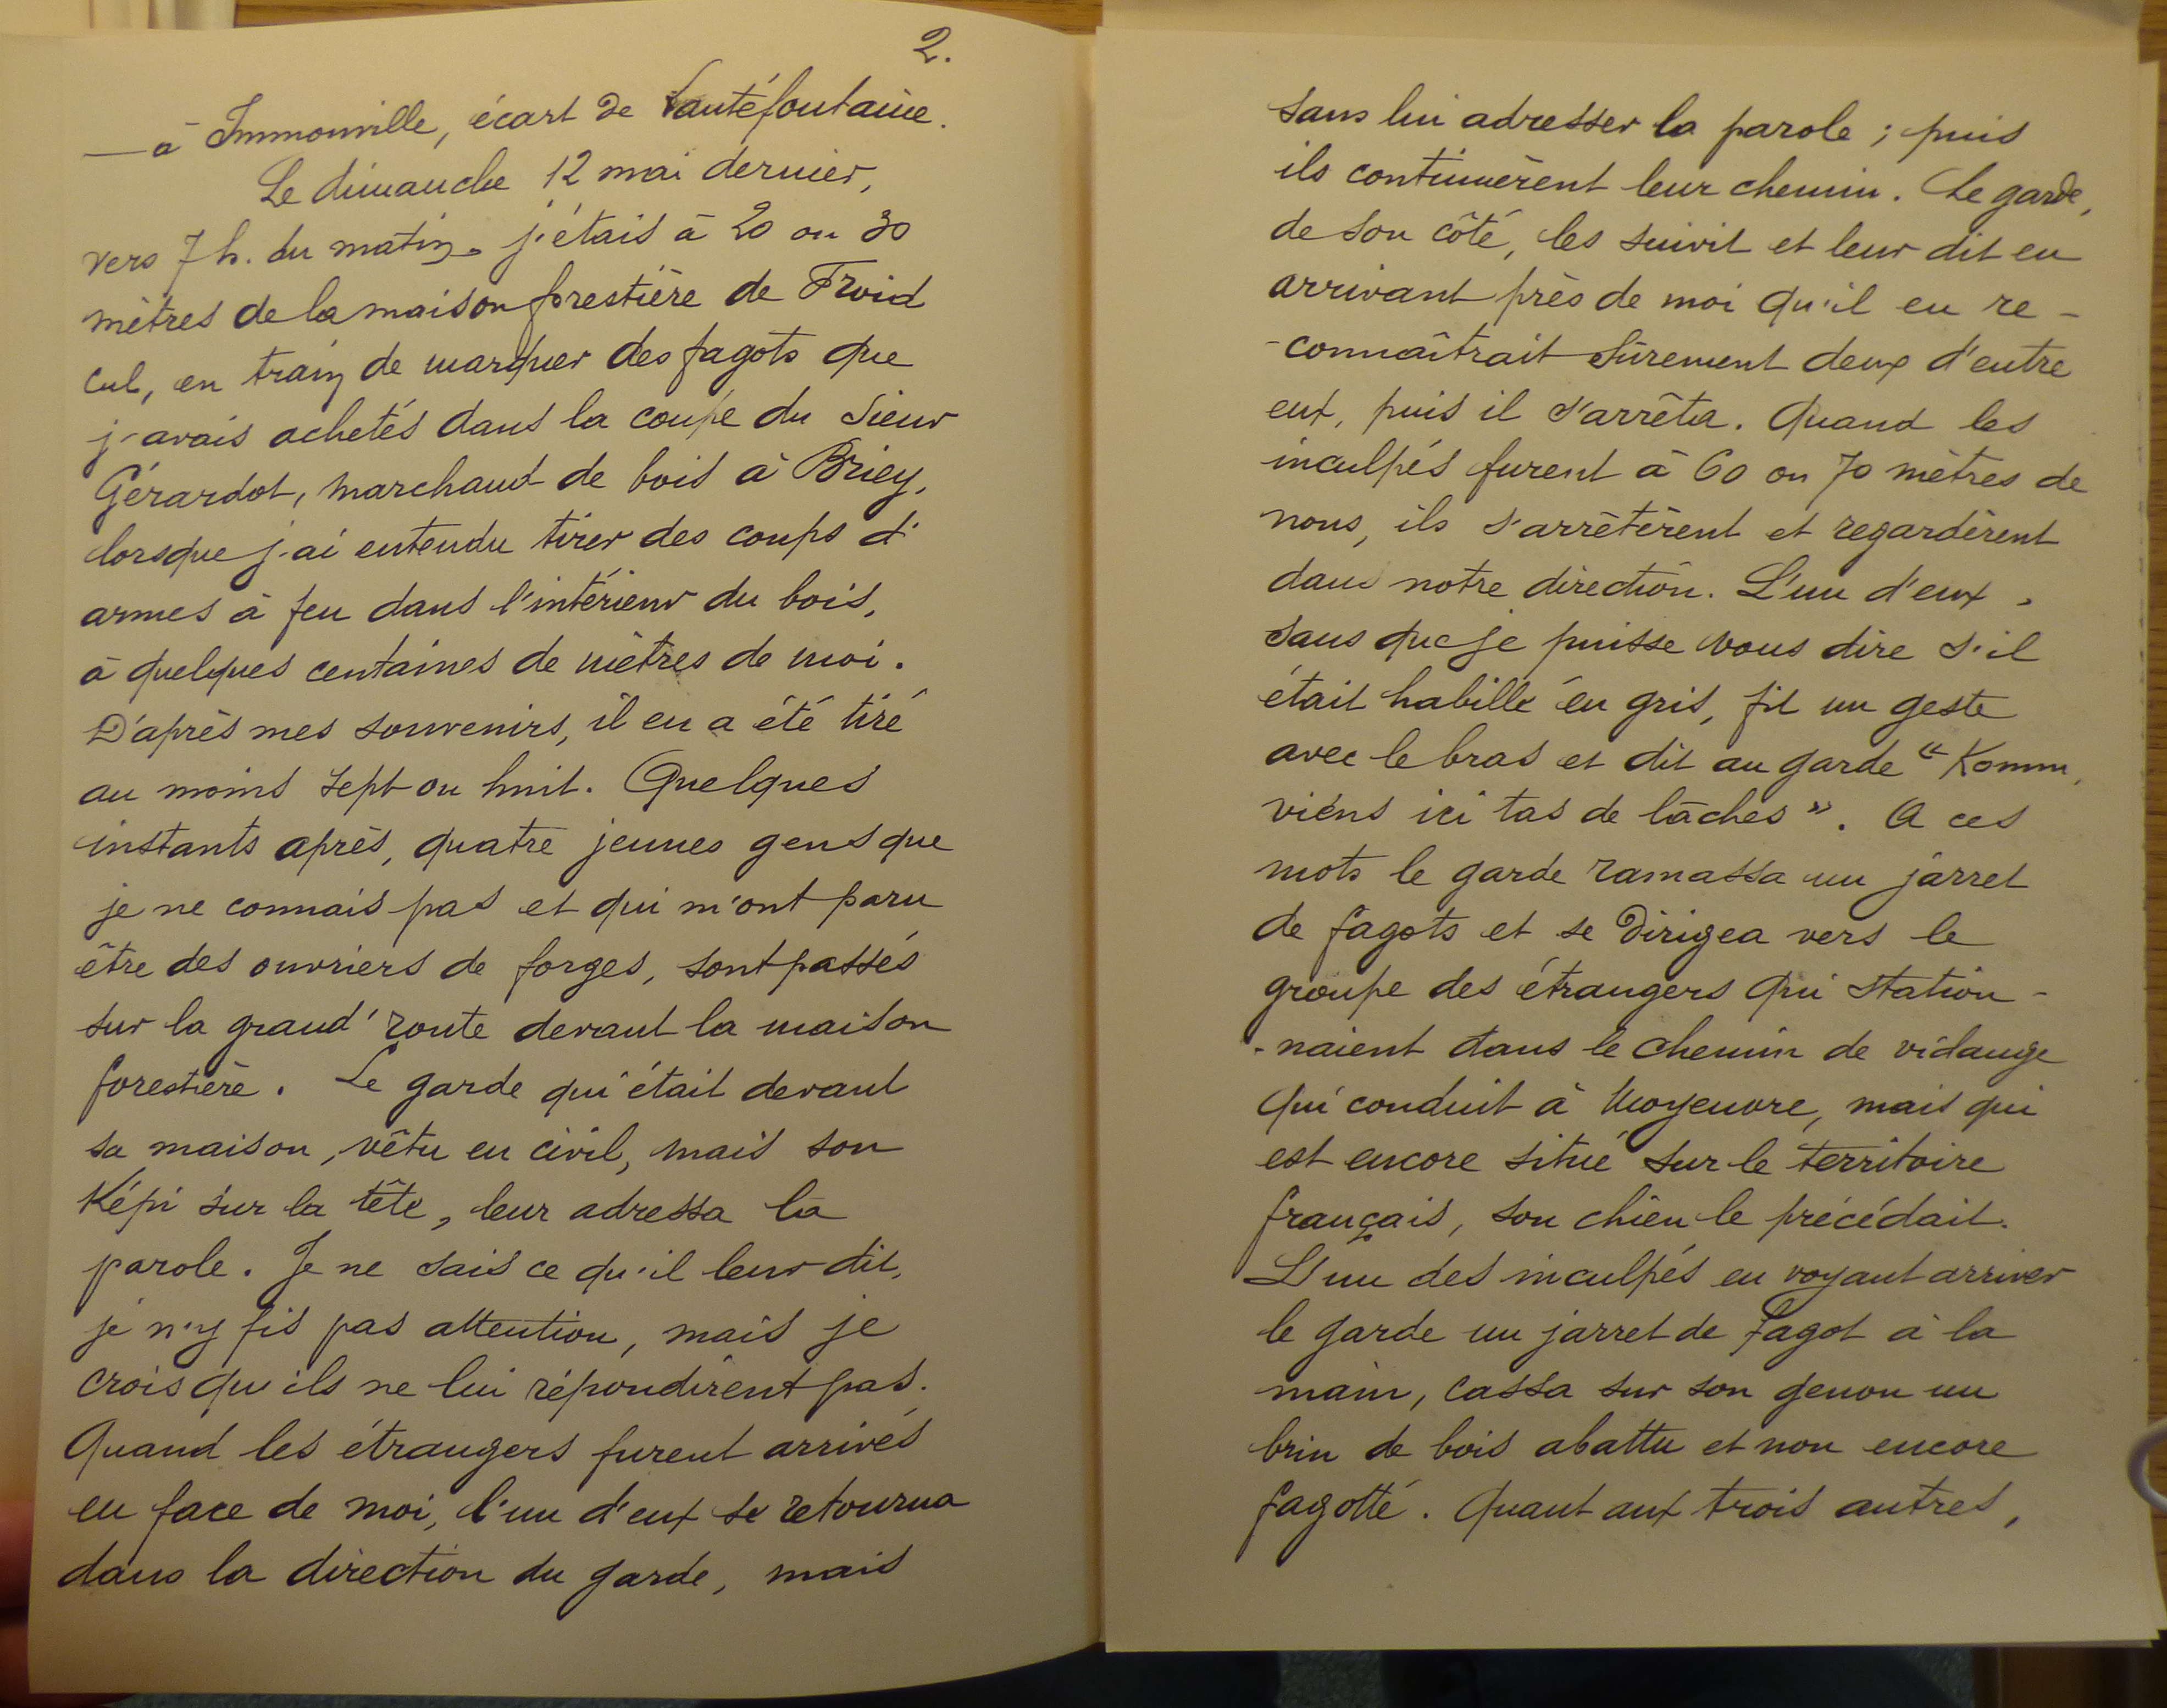 2.
— à Immonville, écart de Lantéfontaine.
Le dimanche 12 mai dernier,
vers 7 h. du matin, j'étais à 20 ou 30
mètres de la maison forestière de Froid
cul, en train de marquer des fagots que
j'avais achetés dans la coupe du sieur
Gérardot, marchand de bois à Briey,
lorsque j'ai entendu tirer des coups d'
armes à feu dans l'intérieur du bois,
à quelques centaines de mètres de moi.
D'après mes souvenirs, il en a été tiré
au moins sept ou huit. Quelques
instants après, quatre jeunes gens que
je ne connais pas et qui m'ont paru
être des ouvriers de forges, sont passés
sur la grand' route devant la maison
forestière. Le garde qui était devant
sa maison, vêtu en civil, mais son
Képi sur la tête, leur adressa la
parole. Je ne sais ce qu'il leur dit,
je n'y fis pas attention, mais je
crois qu'ils ne lui répondirent pas.
Quand les étrangers furent arrivés
en face de moi, l'un d'eux se retourna
dans la direction du garde, mais
sans lui adresser la parole ; puis
ils continuèrent leur chemin. Le garde,
de son côté, les suivit et leur dit en
arrivant près de moi qu'il en re-
-connaîtrait sûrement deux d'entre
eux, puis il s'arrêta. Quand les
inculpés furent à 60 ou 70 mètres de
nous, ils s'arrêtèrent et regardèrent
dans notre direction. L'un d'eux,
sans que je puisse vous dire s'il
était habillé en gris, fit un geste
avec le bras et dit au garde "Komm,
viens ici tas de lâches". A ces
mots le garde ramassa un jarret
de fagots et se dirigea vers le
groupe des étrangers qui station-
-naient dans le chemin de vidange
qui conduit à Moyeuvre, mais qui
est encore situé sur le territoire
français, son chien le précédait.
L'un des inculpés en voyant arriver
le garde un jarret de fagot à la
main, cassa sur son genou un
brin de bois abattu et non encore
fagotté. Quant aux trois autres,